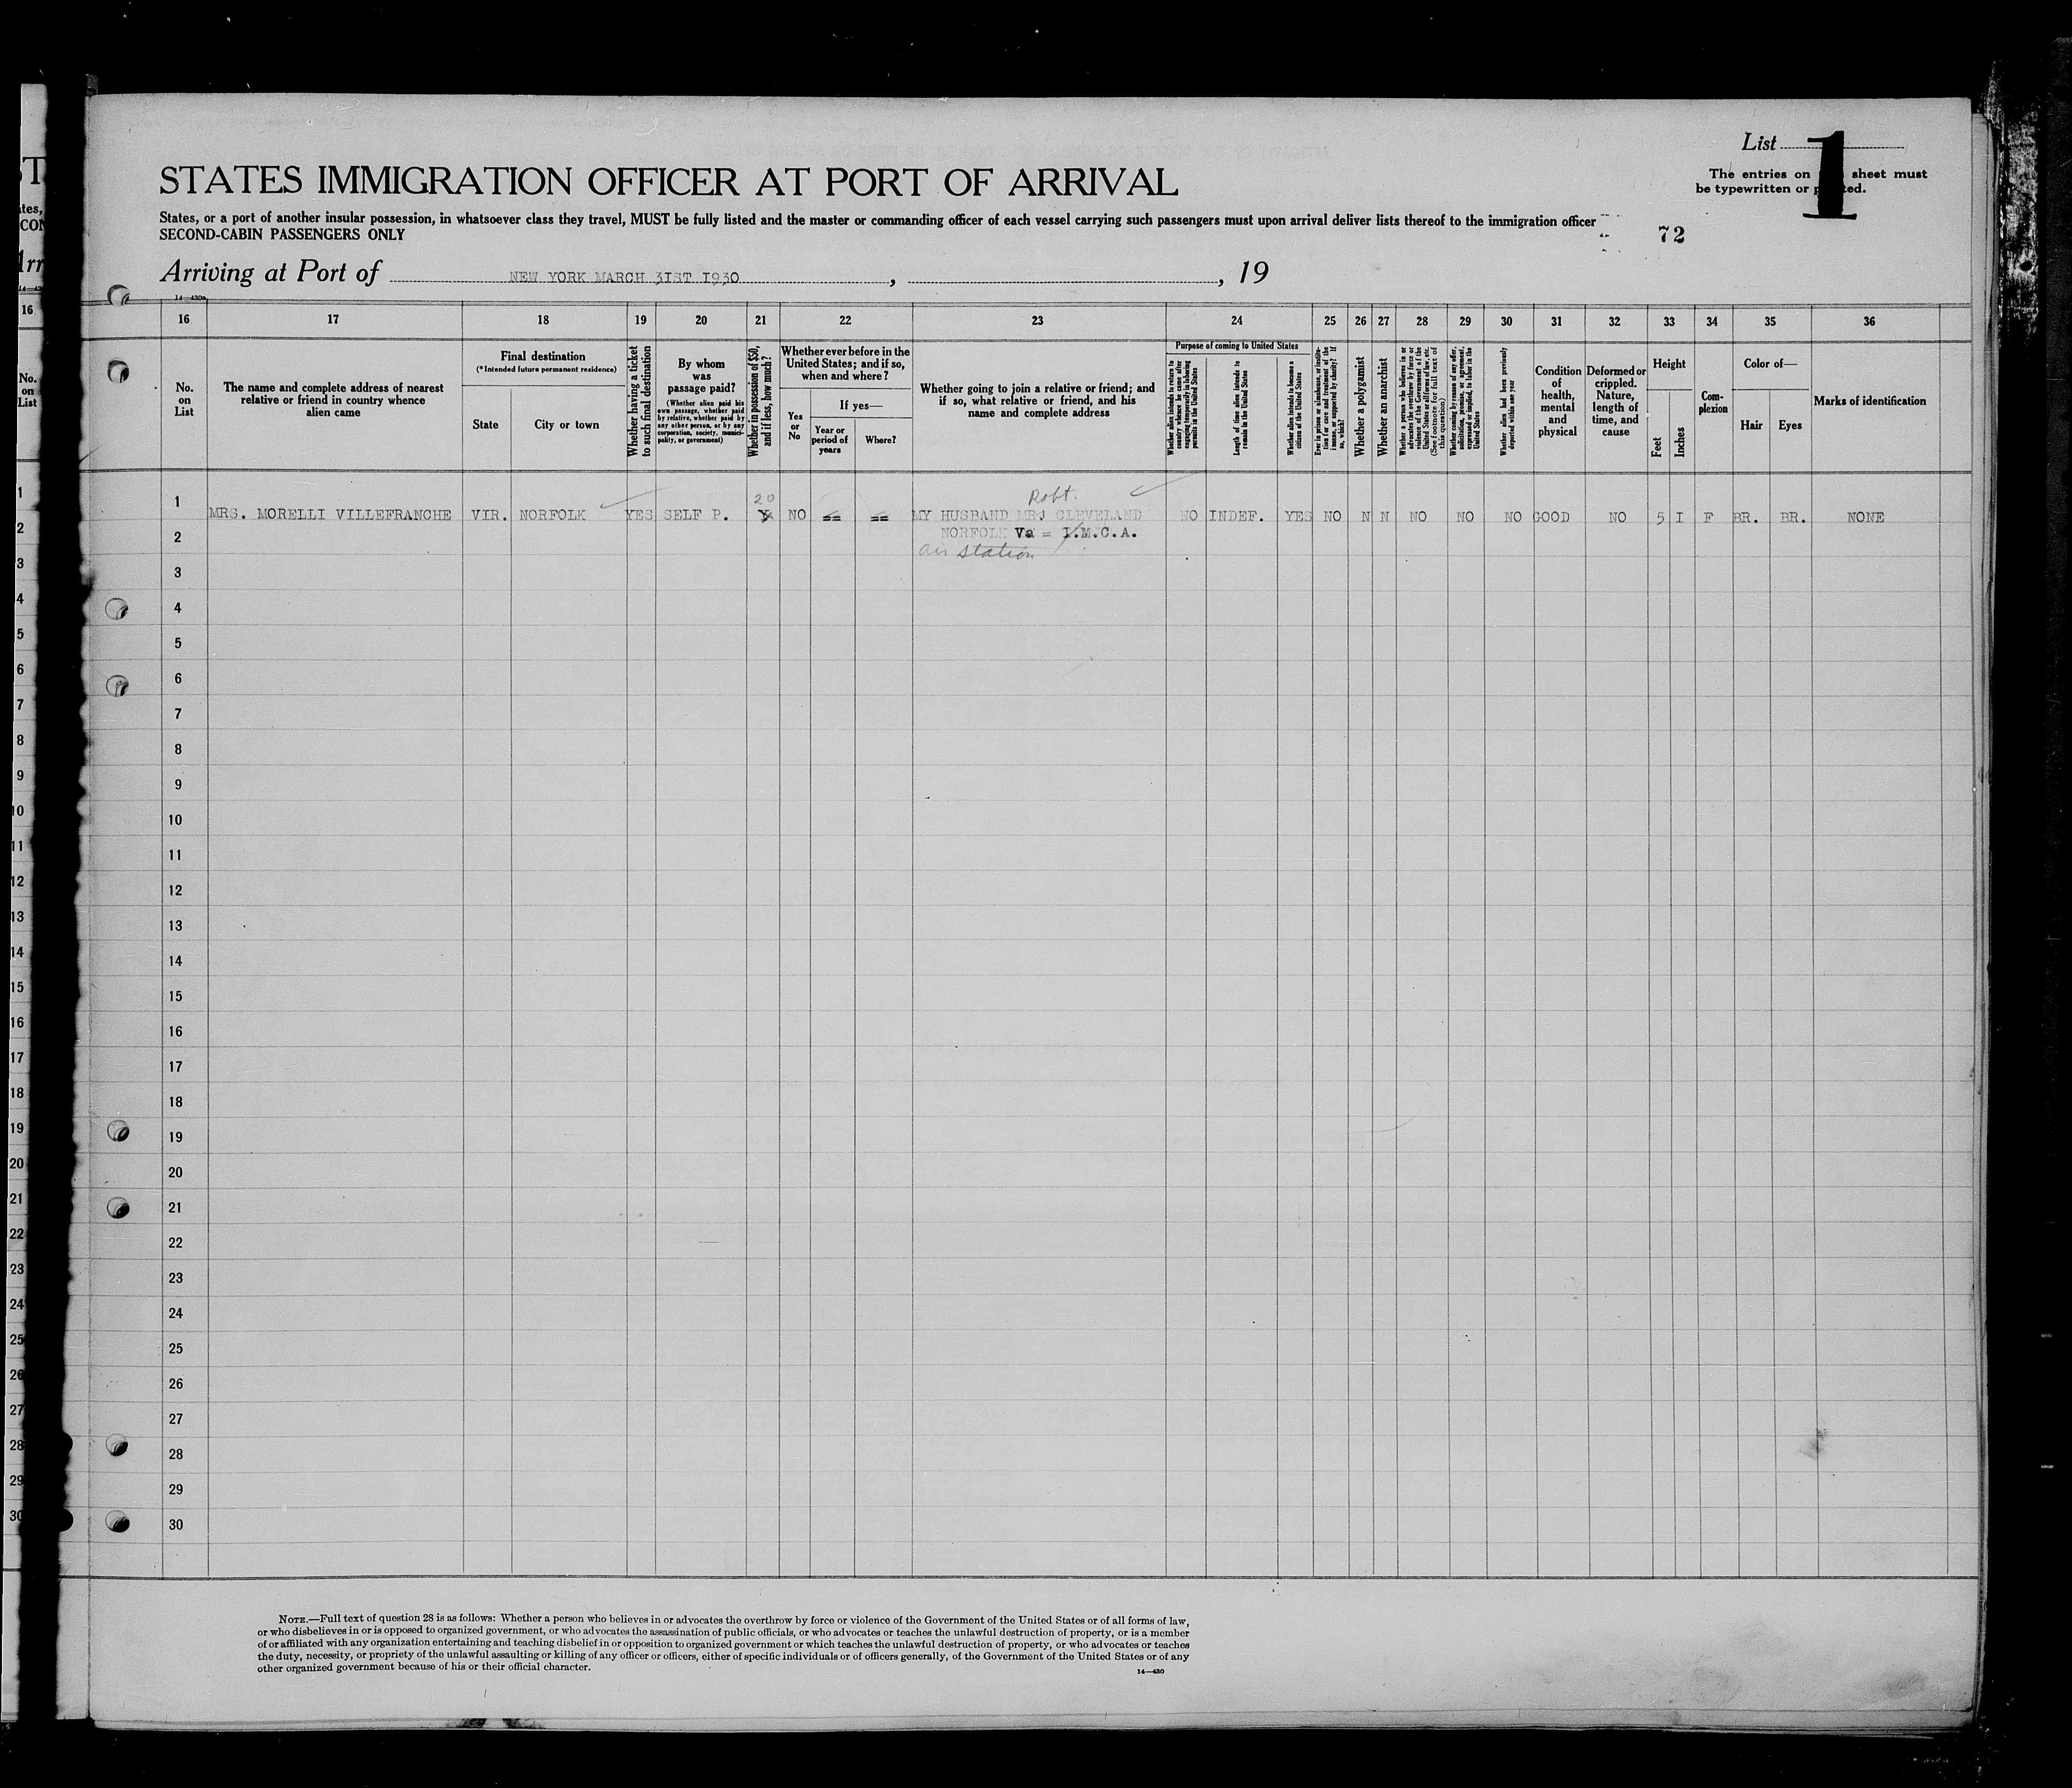 List 1
STATES IMMIGRATION OFFICER AT PORT OF ARRIVAL
The entries on sheet must
be typewritten or
States, or a port of another insular possession, in whatsoever class they travel, MUST be fully listed and the master or commanding officer of each vessel carrying such passengers must upon arrival deliver lists thereof to the immigration officer
SECOND-CABIN PASSENGERS ONLY
72
Arriving at Port of NEW YORK MARCH 3IST I930, , 19
14—430a
16 17 18 19 20 21 22 23 24 25 26 27 28 29 30 31 32 33 34 35 36
No.
on
List
The name and complete address of nearest
relative or friend in country whence
alien came
Final destination
(*Intended future permanent residence)
State
City or town
Whether having a ticket
to such final destination
By whom
was
passage paid?
(Whether alien paid his
own passage, whether paid
by relative, whether paid by
any other person, or by any
corporation, society, munici-
pality, or government)
Whether in possession of $50,
and if less, how much?
Whether ever before in the
United States; and if so,
when and where?
Yes
or
No
If yes—
Year or
period of
years
Where?
Whether going to join a relative or friend; and
if so, what relative or friend, and his
name and complete address
Purpose of coming to United States
Whether alien intends to return to
country whence he came after
engaging temporarily in laboring
pursuits in the United States
Length of time alien intends to
remain in the United States
Whether alien intends to become a
citizen of the United States
Ever in prison or almshouse, or institu-
tion for care and treatment of the
insane, or supported by charity? If
so, which?
Whether a polygamist
Whether an anarchist
Whether a person who believes in or
advocates the overthrow by force or
violence of the Government of the
United States or all forms of law, etc.
(See footnote for full text of
this question)
Whether coming by reason of any offer,
solicitation, promise, or agreement,
expressed or implied, to labor in the
United States
Whether alien had been previously
deported within one year
Condition
of
health,
mental
and
physical
Deformed or
crippled.
Nature,
length of
time, and
cause
Height
Feet
Inches
Com-
plexion
Color of—
Hair
Eyes
Marks of identification
20 Robt.
1 MRS. MORELLI VILLEFRANCHE VIR. NORFOLK YES SELF P. NO == == MY HUSBAND MR CLEVELAND NO INDEF. YES NO N N NO NO NO GOOD NO 5 I F BR. BR. NONE
2 NORFOLK Va = .M.C.A.
air station
3
4
5
6
7
8
9
10
11
12
13
14
15
16
17
18
19
20
21
22
23
24
25
26
27
28
29
30
NOTE.—Full text of question 28 is as follows: Whether a person who believes in or advocates the overthrow by force or violence of the Government of the United States or of all forms of law,
or who disbelieves in or is opposed to organized government, or who advocates the assassination of public officials, or who advocates or teaches the unlawful destruction of property, or is a member
of or affiliated with any organization entertaining and teaching disbelief in or opposition to organized government or which teaches the unlawful destruction of property, or who advocates or teaches
the duty, necessity, or propriety of the unlawful assaulting or killing of any officer or officers, either of specific individuals or of officers generally, of the Government of the United States or of any
other organized government because of his or their official character.
14—430